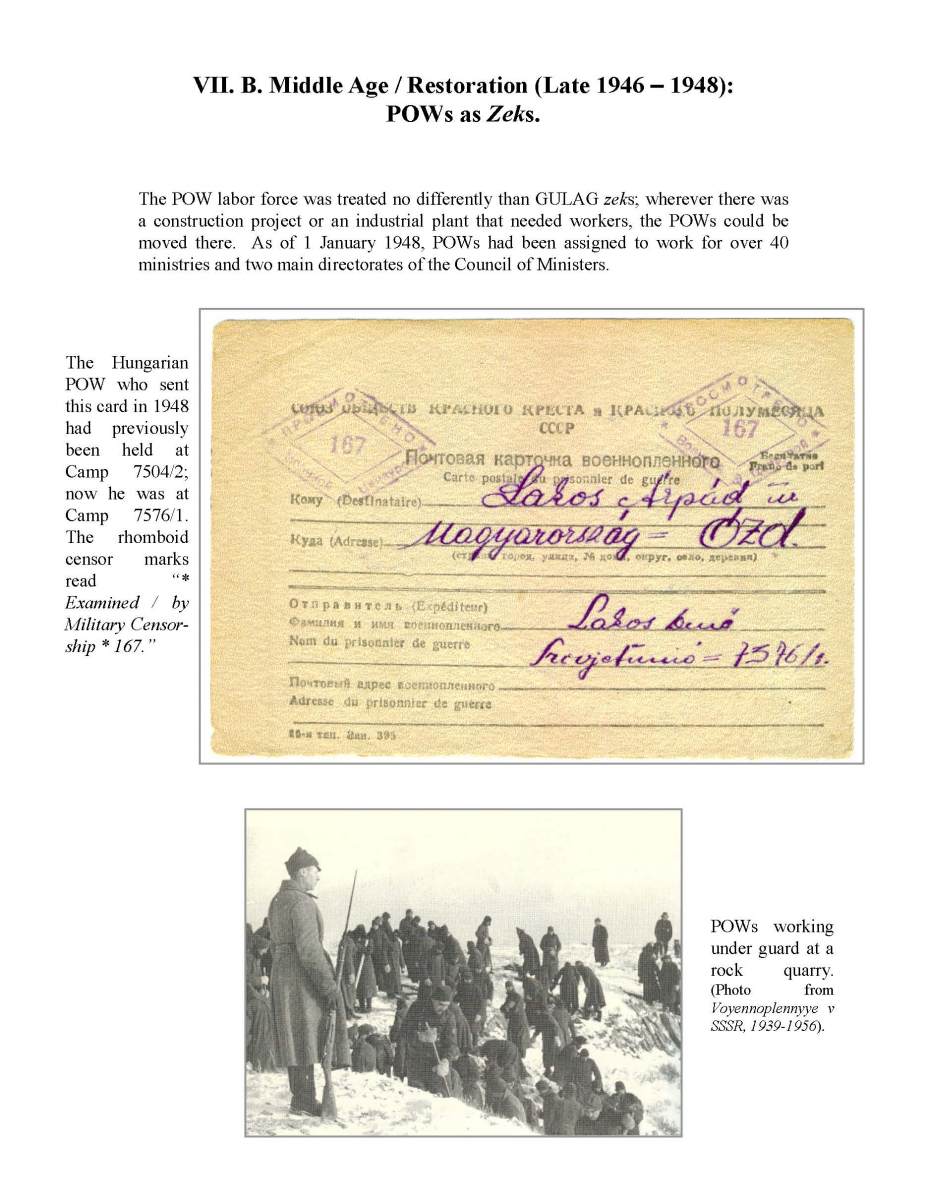 VII. B. Middle Age / Restoration (Late 1946 – 1948):
POWs as Zeks.
The POW labor force was treated no differently than GULAG zeks; wherever there was
a construction project or an industrial plant that needed workers, the POWs could be
moved there. As of 1 January 1948, POWs had been assigned to work for over 40
ministries and two main directorates of the Council of Ministers.
The Hungarian
POW who sent
this card in 1948
had previously
been held at
Camp 7504/2;
now he was at
Camp 7576/1.
The rhomboid
censor marks
read "*
Examined / by
Military Censor-
ship * 167."
СОЮЗ ОБЩЕСТВ КРАСНОГО КРЕСТА и КРАСНОГО ПОЛУМЕСЯЦА
СССР
* ПРОСМОТРЕНО *
167
Военной Цензурой
* ПРОСМОТРЕНО *
167
Военной
Почтовая карточка военнопленного
Carte postale du prisonnier de guerre
Бесплатно
Franc de port
Кому (Destinataire) Lakos Árpád úr
Куда (Adresse) Magyarország = Ózd.
(страна, город, улица, № дома, округ, село, деревня)
Отправитель (Expéditeur)
Фамилия и имя военнопленного Lakos Jenő
Nom du prisonnier de guerre
Szovjetunió = 7576/1.
Почтовый адрес военнопленного
Adresse du prisonnier de guerre
26-я тип. Зак. 395
POWs working
under guard at a
rock quarry.
(Photo from
Voyennoplennyye v
SSSR, 1939-1956).